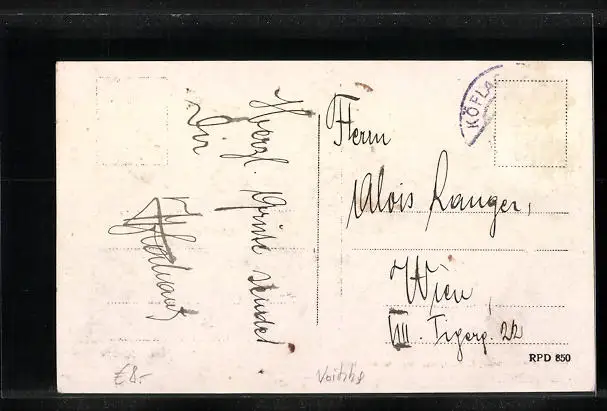 Herzl. Grüße sendet
Dir
KÖFLA
Herrn
Alois Langer,
Wien,
VIII. Tigerg. 22
RPD 850
€8.-